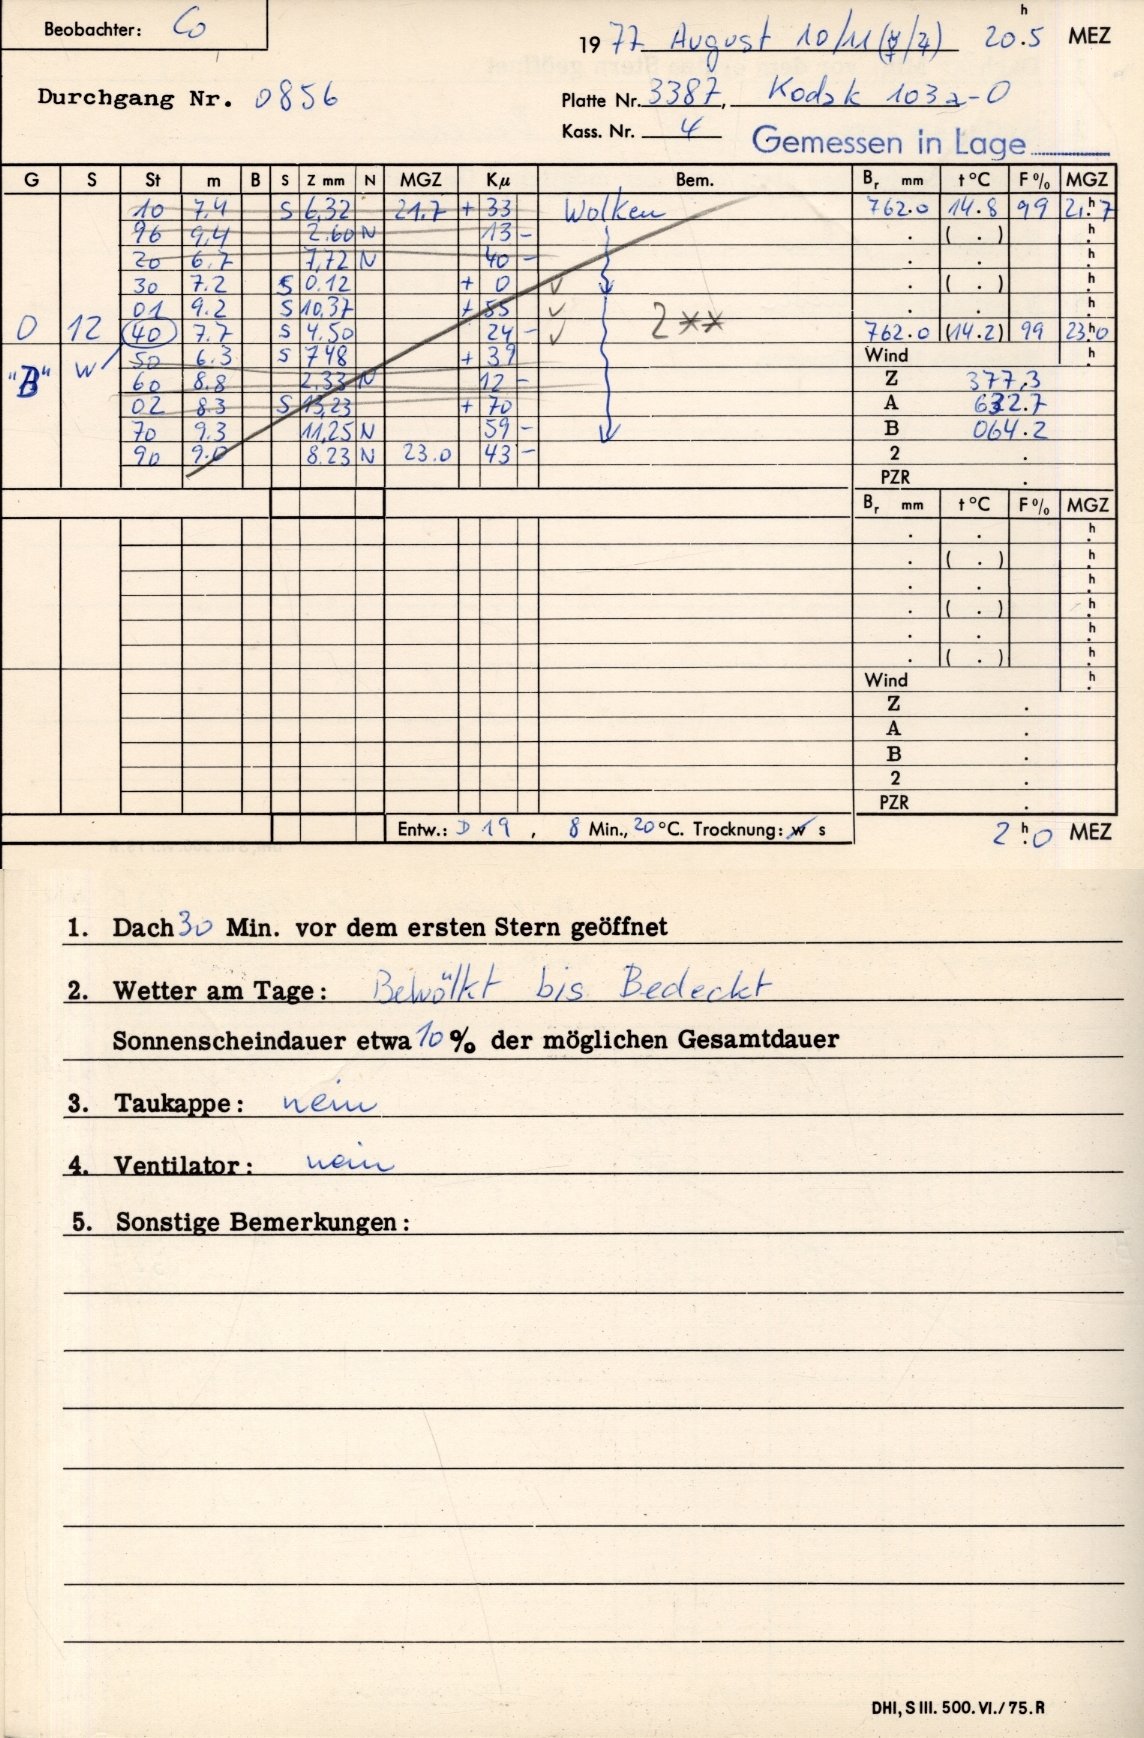 Beobachter: Co
1977 August 10/11 (☿/♃) 20.5 h MEZ
Durchgang Nr. 0856
Platte Nr. 3387, Kodak 103a-O
Kass. Nr. 4
Gemessen in Lage
G S St m B S Z mm N MGZ Kμ Bem. Br mm t °C F % MGZ
10 7.4 S 6,32 21.7 + 33 Wolken 762.0 14.8 99 21.h7
96 9.4 2.60 N 13 - . ( . ) h.
20 6.7 7,72 N 40 - . . h.
30 7.2 S 0.12 + 0 . ( . ) h.
01 9.2 S 10,37 + 55 2** . . h.
0 12 40 7.7 S 4.50 24 - 762.0 (14.2) 99 23.h0
"B" W 50 6.3 S 7.48 + 39 Wind h.
60 8.8 2,33 N 12 - Z 377,3
02 8.3 S 13,23 + 70 A 632.7
70 9.3 11,25 N 59 - B 064.2
90 9.0 8.23 N 23.0 43 - 2 .
PZR .
Br mm t °C F % MGZ
. . h.
. ( . ) h.
. . h.
. ( . ) h.
. . h.
. ( . ) h.
Wind h.
Z .
A .
B .
2 .
PZR .
Entw.: D 19, 8 Min., 20 °C. Trocknung: w s
2.h0 MEZ
1. Dach 30 Min. vor dem ersten Stern geöffnet
2. Wetter am Tage: Bewölkt bis Bedeckt
Sonnenscheindauer etwa 10 % der möglichen Gesamtdauer
3. Taukappe: nein
4. Ventilator: nein
5. Sonstige Bemerkungen:
DHI, S III. 500. VI./75. R